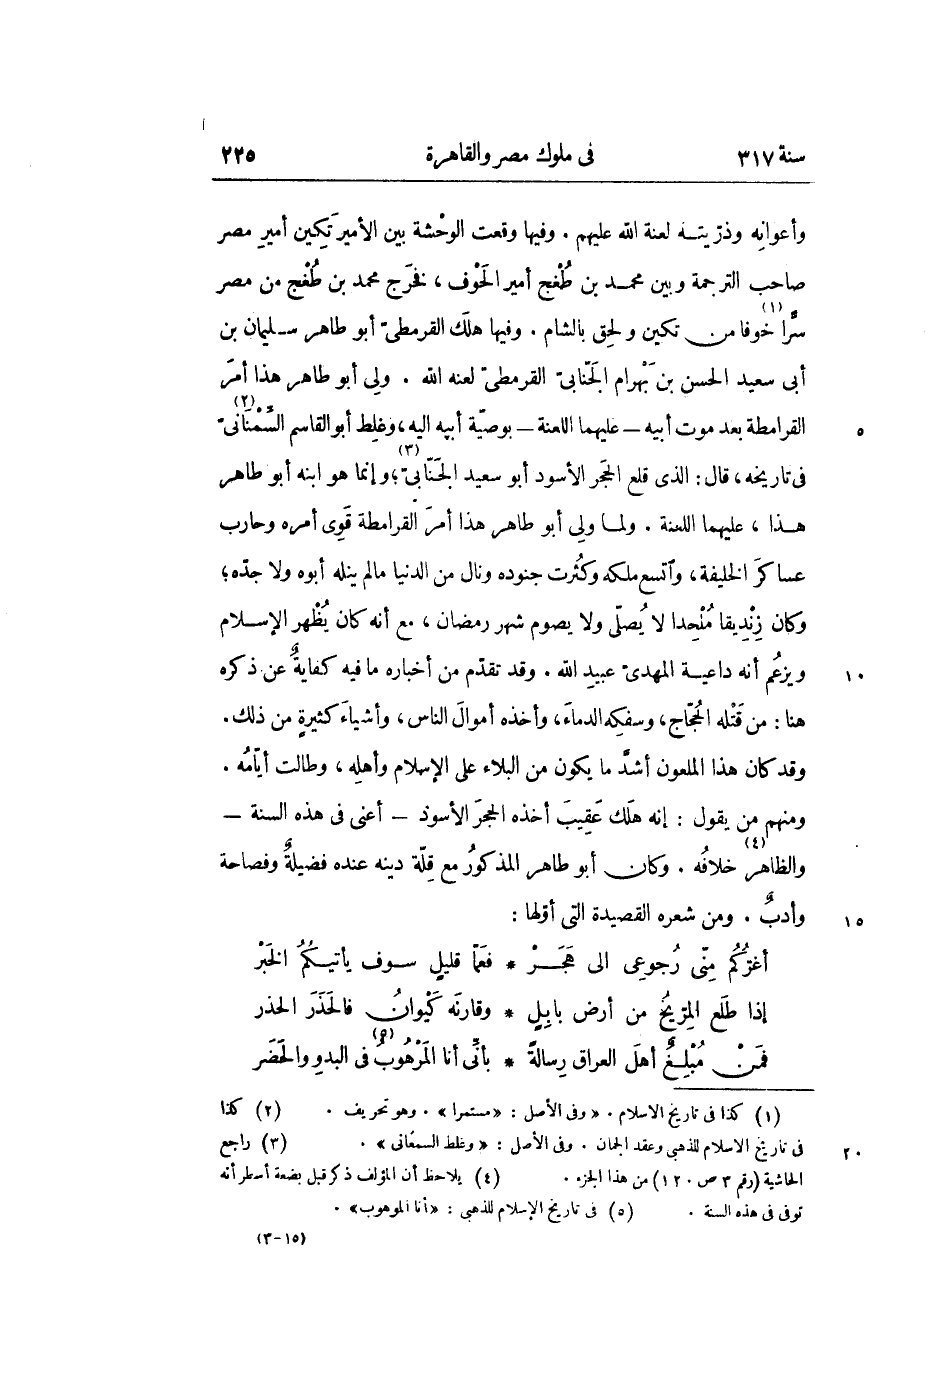 سنة ٣١٧ فى ملوك مصر والقاهرة ٢٢٥
وأعوانِه وذرّيتــه لعنة الله عليهم . وفيها وقعت الوحْشة بين الأمير تَكِين أميرِ مصر
صاحب الترجمة وبين محمــد بن طُغْج أمير الحَوْف ، فخرَج محمد بن طُغْج من مصر
سرًّا (١) خوفا من تكين ولحِق بالشام . وفيها هلَك القرمطىّ أبو طاهر ســليمان بن
أبى سعيد الحسن بن بَهْرام الجَنّابىّ القرمطىّ لعنه الله . ولِى أبو طاهر هذا أمرَ
القرامطة بعد موت أبيه – عليهما اللعنة – بوصيّة أبيه اليه ، وغلِط أبو القاسم السِّمْنَانىّ (٢) ٥
فى تاريخه ، قال : الذى قلع الحَجَر الأسود أبو سعيد الجَنّابىّ (٣) ؛ وإنما هو ابنه أبو طاهر
هــذا ، عليهما اللعنة . ولمــا ولِى أبو طاهر هذا أمرَ القرامطة قَوِى أمره وحارب
عساكرَ الخليفة ، وٱتسع ملكه وكثُرت جنوده ونال من الدنيا مالم ينله أبوه ولا جدّه ؛
وكان زِنْدِيقا مُلْحِدا لا يُصلّى ولا يصوم شهر رمضان ، مع أنه كان يُظْهِر الإســلام
ويزعُم أنه داعيــة المهدىّ عبيدِ الله . وقد تقدّم من أخباره ما فيه كفايةٌ عن ذكره ١٠
هنا : من قَتْله الحُجّاج ، وسفكِه الدماءَ ، وأخذه أموالَ الناس ، وأشياءَ كثيرةٍ من ذلك .
وقد كان هذا الملعون أشدَّ ما يكون من البلاء على الإسلام وأهلِه ، وطالت أيّامُه .
ومنهم من يقول : إنه هلَك عَقِيبَ أخذه الحجرَ الأسودَ – أعنى فى هذه السنة –
والظاهر (٤) خلافُه . وكان أبو طاهر المذكورُ مع قِلّة دينه عنده فضيلةٌ وفصاحة
وأدبٌ . ومن شعره القصيدة التى أوّلها : ١٥
أغرّكُم مِنّى رُجوعى الى هَجَــرْ * فعَمّا قليلٍ ســوف يأتيكُمُ الخَبَرْ
إذا طلَع المِرّيخُ من أرض بابِلٍ * وقارنَه كَيْوانُ فالحَذَرَ الحذر
فمَنْ مُبْلِغٌ أهلَ العراق رِسالةً * بأنّى أنا المَرْهُوبُ (٥) فى البدو والحَضَر
(١) كذا فى تاريخ الاسلام . وفى الأصل : «مستمرا» . وهو تحريف . (٢) كذا
فى تاريخ الاسلام للذهبى وعقد الجمان . وفى الأصل : «وغلط السمعانى» . (٣) راجع ٢٠
الحاشية (رقم ٣ ص ١٢٠) من هذا الجزء . (٤) يلاحظ أن المؤلف ذكر قبل بضعة أسطر أنه
توفى فى هذه السنة . (٥) فى تاريخ الإسلام للذهبى : «أنا الموهوب» .
(١٥-٣)